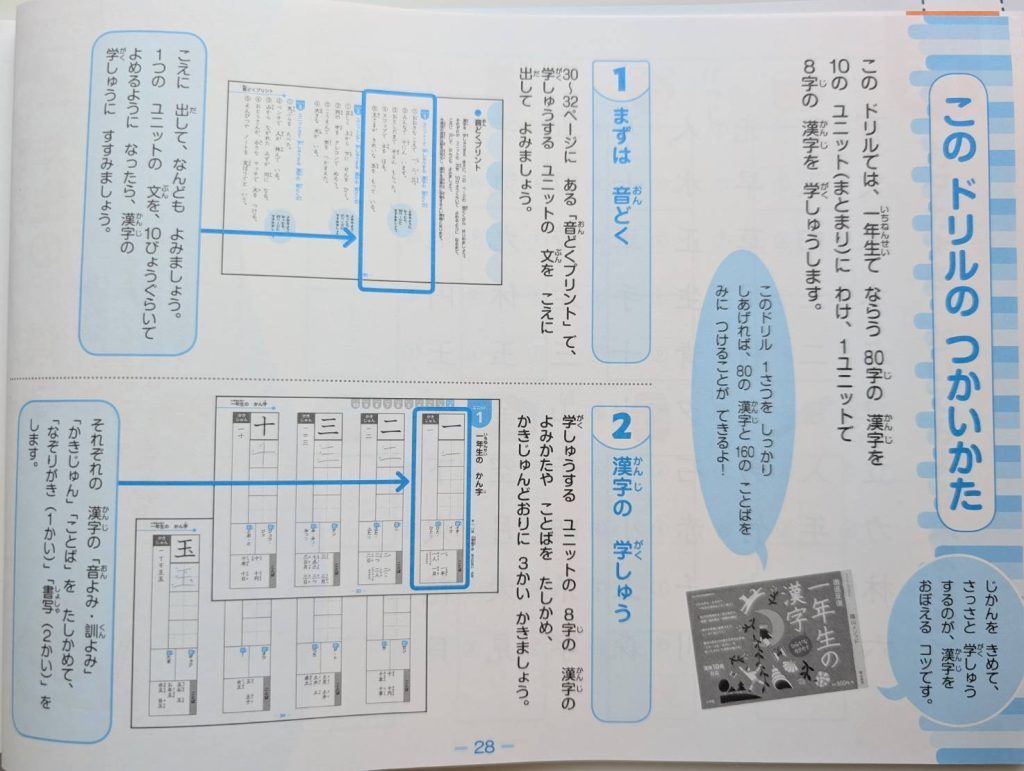 このドリルの つかいかた
じかんを きめて、
さっさと 学しゅう
するのが、漢字を
おぼえる コツです。
この ドリルでは、一年生で ならう 80字の 漢字を
10の ユニット(まとまり)に わけ、1ユニットで
8字の 漢字を 学しゅうします。
このドリル 1さつを しっかり
しあげれば、80の 漢字と 160の ことばを
みに つけることが できるよ!
一年生の
漢字
1 まずは 音どく
30〜32ページに ある「音どくプリント」で、
学しゅうする ユニットの 文を こえに
出して よみましょう。
音どくプリント
こえに 出して、なんども よみましょう。
1つの ユニットの 文を、10びょうぐらいで
よめるように なったら、漢字の
学しゅうに すすみましょう。
2 漢字の 学しゅう
学しゅうする ユニットの 8字の 漢字の
よみかたや ことばを たしかめ、
かきじゅんどおりに 3かい かきましょう。
ユニット
1
一年生の かん字
一
二
三
十
一年生の かん字
玉
それぞれの 漢字の「音よみ・訓よみ」
「かきじゅん」「ことば」を たしかめて、
「なぞりがき(1かい)」「書写(2かい)」を
します。
- 28 -